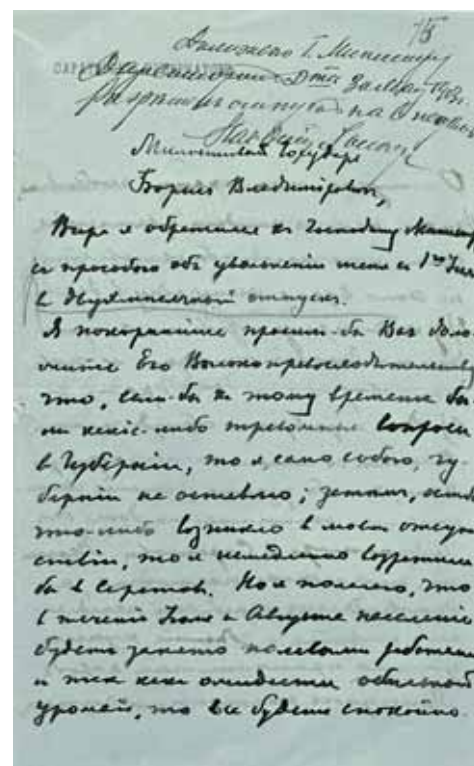 75
Доложено Г. Министру
САРАТ
разрешить отпуск на
Милостивый Государь
Борис Владимирович,
Вчера я обратился къ Господину Министру
съ просьбою объ увольненіи меня съ 1го
въ двухмесячный отпускъ.
Я покорнѣйше просилъ-бы Васъ доло-
жить Его Высокопревосходительству,
что, если-бы къ тому времени бы-
ли какіе-либо тревожные вопросы
въ Губерніи, то я, само собою, гу-
берніи не оставлю; затѣмъ, если-бы
что-либо возникло въ моемъ отсут-
ствіи, то я немедленно возвратился
бы въ Саратовъ. Но я полагаю, что
въ теченіи Іюля и Августа населеніе
будетъ занято полевыми работами
и такъ какъ ожидается обильный
урожай, то все будетъ спокойно.